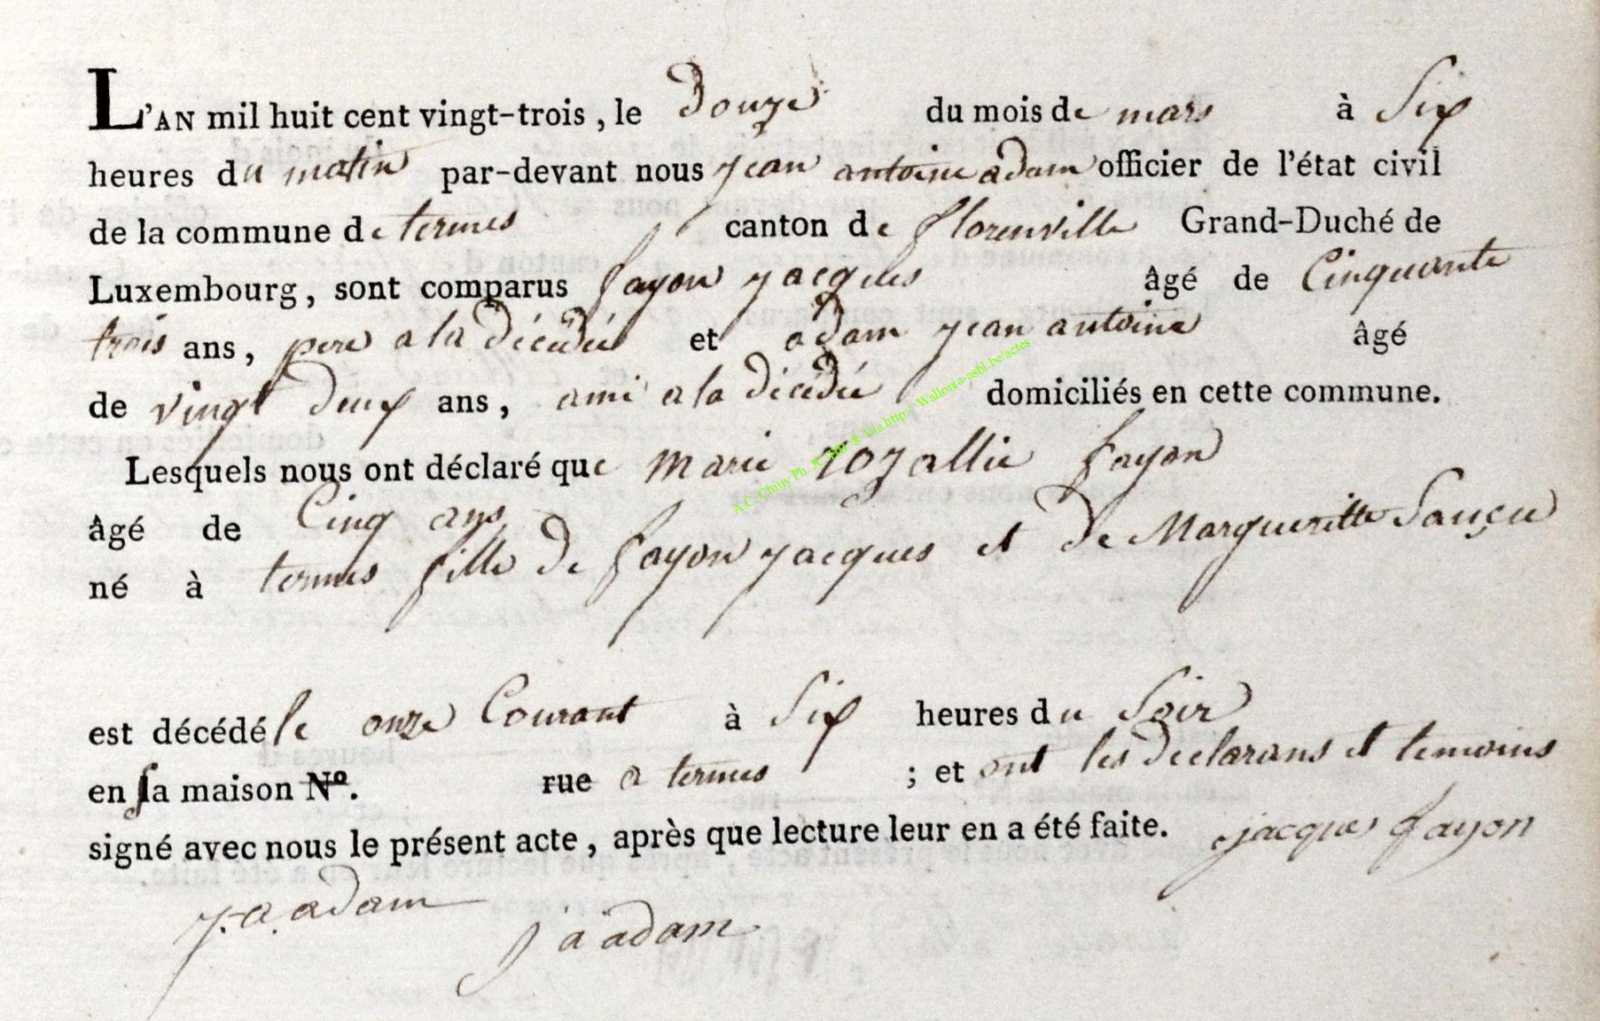 L'AN mil huit cent vingt-trois, le douze du mois de mars à Six
heures du matin par-devant nous jean antoine adam officier de l'état civil
de la commune de termes canton de florenville Grand-Duché de
Luxembourg, sont comparus fayon jacques âgé de Cinquante
trois ans, pere a la décédée et adam jean antoine âgé
de vingt deux ans, ami a la décédée domiciliés en cette commune.
Lesquels nous ont déclaré que marie rozallie fayon
âgé de Cinq ans
né à termes fille de fayon jacques et de Margueritte Sauçu
est décédé le onze Courant à Six heures du Soir
en sa maison Nº. rue a termes ; et ont les declarans et temoins
signé avec nous le présent acte, après que lecture leur en a été faite. jacques fayon
j. a. adam
j a adam